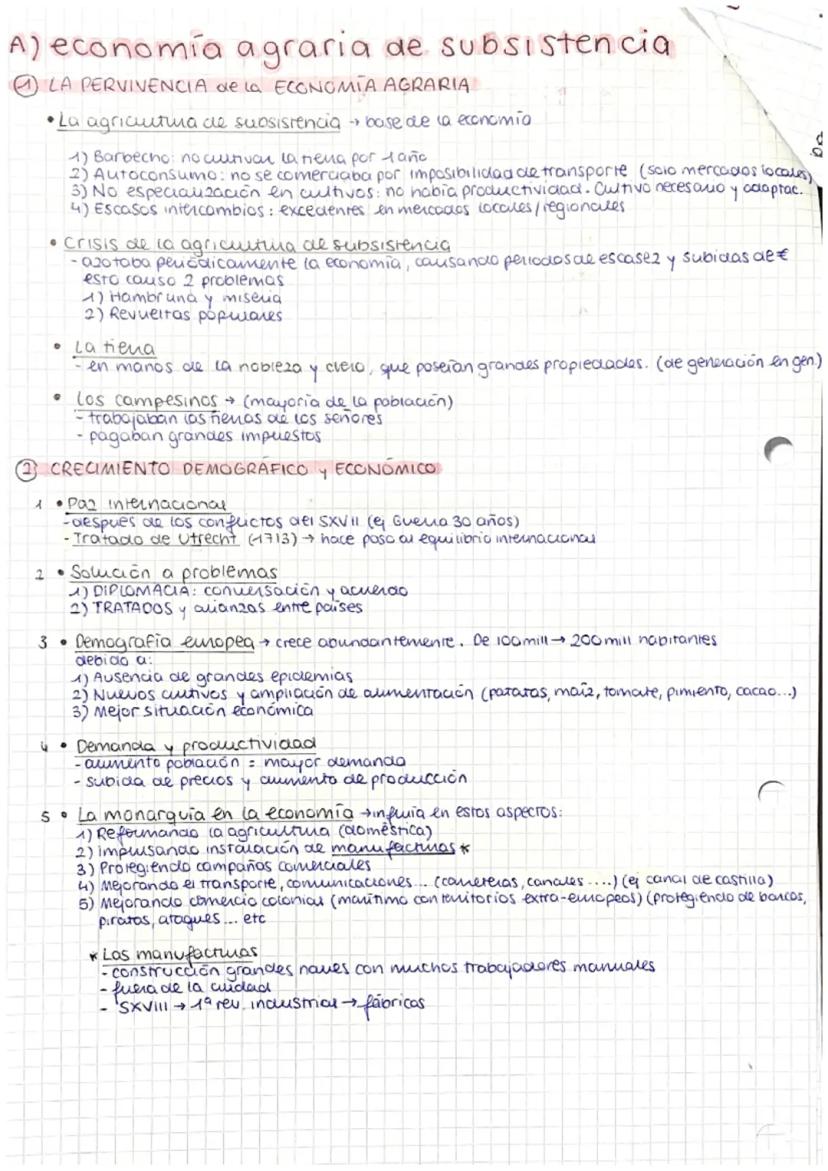 A) economía agraria de subsistencia
① LA PERVIVENCIA de la ECONOMÍA AGRARIA
• La agricultura de subsistencia → base de la economía
1) Barbecho: no cultivar la tierra por 1 año
2) Autoconsumo: no se comerciaba por imposibilidad de transporte (solo mercados locales)
3) No especialización en cultivos: no había productividad. Cultivo necesario y adaptac.
4) Escasos intercambios: excedentes en mercados locales/regionales
• Crisis de la agricultura de subsistencia
- azotaba periódicamente la economía, causando periodos de escasez y subidas de €
esto causo 2 problemas
1) Hambruna y miseria
2) Revueltas populares
• La tierra
- en manos de la nobleza y clero, que poseían grandes propiedades. (de generación en gen.)
• Los campesinos → (mayoría de la población)
- trabajaban las tierras de los señores
- pagaban grandes impuestos
② CRECIMIENTO DEMOGRÁFICO y ECONÓMICO
1 • Paz internacional
- después de los conflictos del SXVII (ej Guerra 30 años)
- Tratado de Utrecht (1713) → hace paso al equilibrio internacional
2 • Solución a problemas
1) DIPLOMACIA: conversación y acuerdo
2) TRATADOS y alianzas entre países
3 • Demografía europea → crece abundantemente. De 100 mill → 200 mill habitantes
debido a:
1) Ausencia de grandes epidemias
2) Nuevos cultivos y ampliación de alimentación (patatas, maíz, tomate, pimiento, cacao...)
3) Mejor situación económica
4 • Demanda y productividad
- aumento población = mayor demanda
- subida de precios y aumento de producción
5 • La monarquía en la economía → influía en estos aspectos:
1) Reformando la agricultura (doméstica)
2) impulsando instalación de manufacturas *
3) Protegiendo compañas comerciales
4) Mejorando el transporte, comunicaciones... (carreteras, canales ....) (ej canal de castilla)
5) Mejorando comercio colonial (marítimo con territorios extra-europeos) (protegiendo de barcos,
piratas, ataques... etc
* Las manufacturas
- construcción grandes naves con muchos trabajadores manuales
- fuera de la ciudad
- SXVIII → 1ª rev. industrial → fábricas